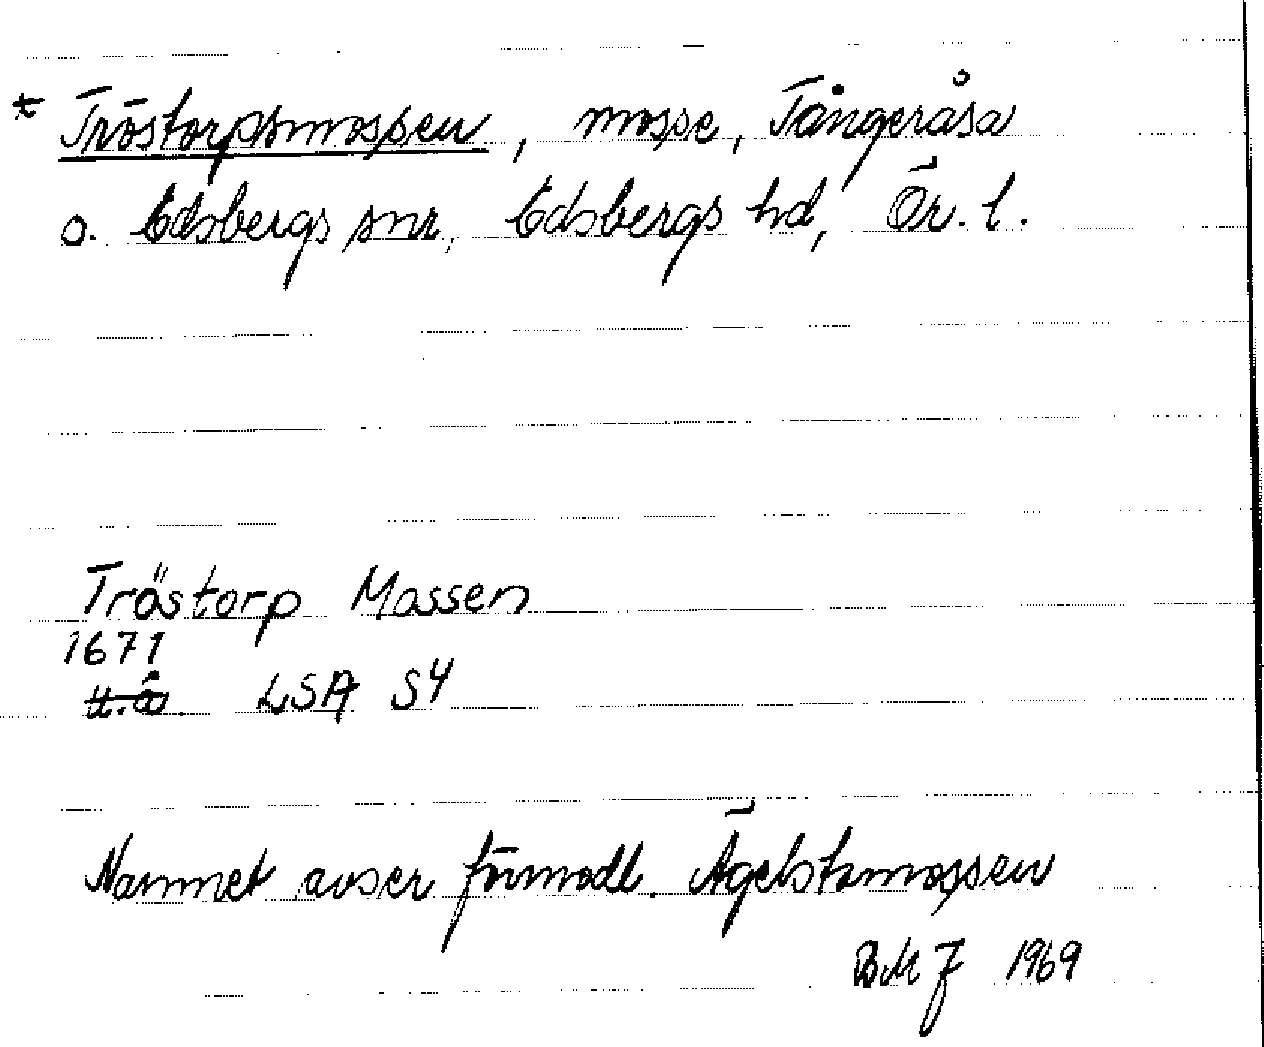 * Tröstorpsmossen, mosse, Tångeråsa
o. Edsbergs snr, Edsbergs hd, Ör. l.
Tröstorp Mossen
1671
u.å. LSA S4
Namnet avser förmodl. Ägelstamossen
BMJ 1969